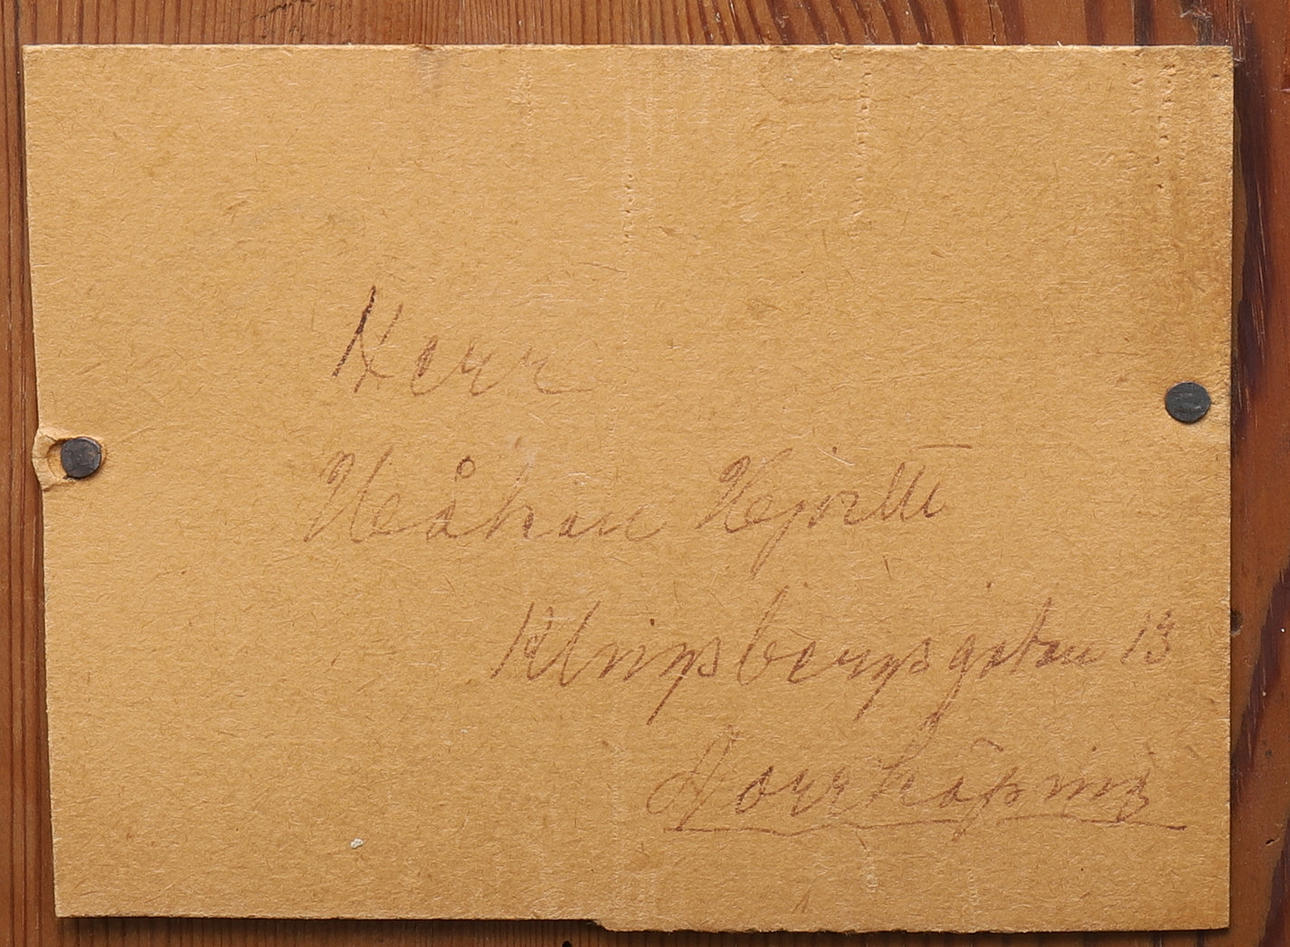 Herr
Håkan Hjortt
Klingsbergsgatan 13
Norrköping